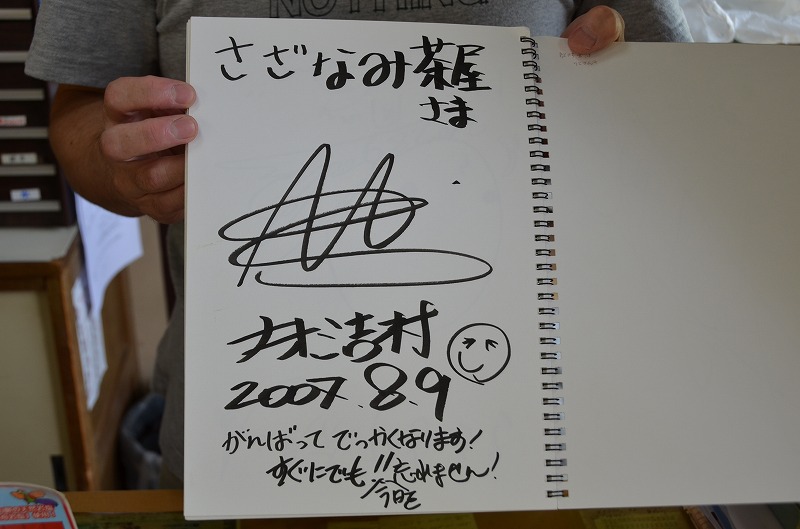 NOTHING
さざなみ茶屋
さま
吉村
2007.8.9
がんばって でっかくなります!
すぐにでも!! 忘れません!
今日を